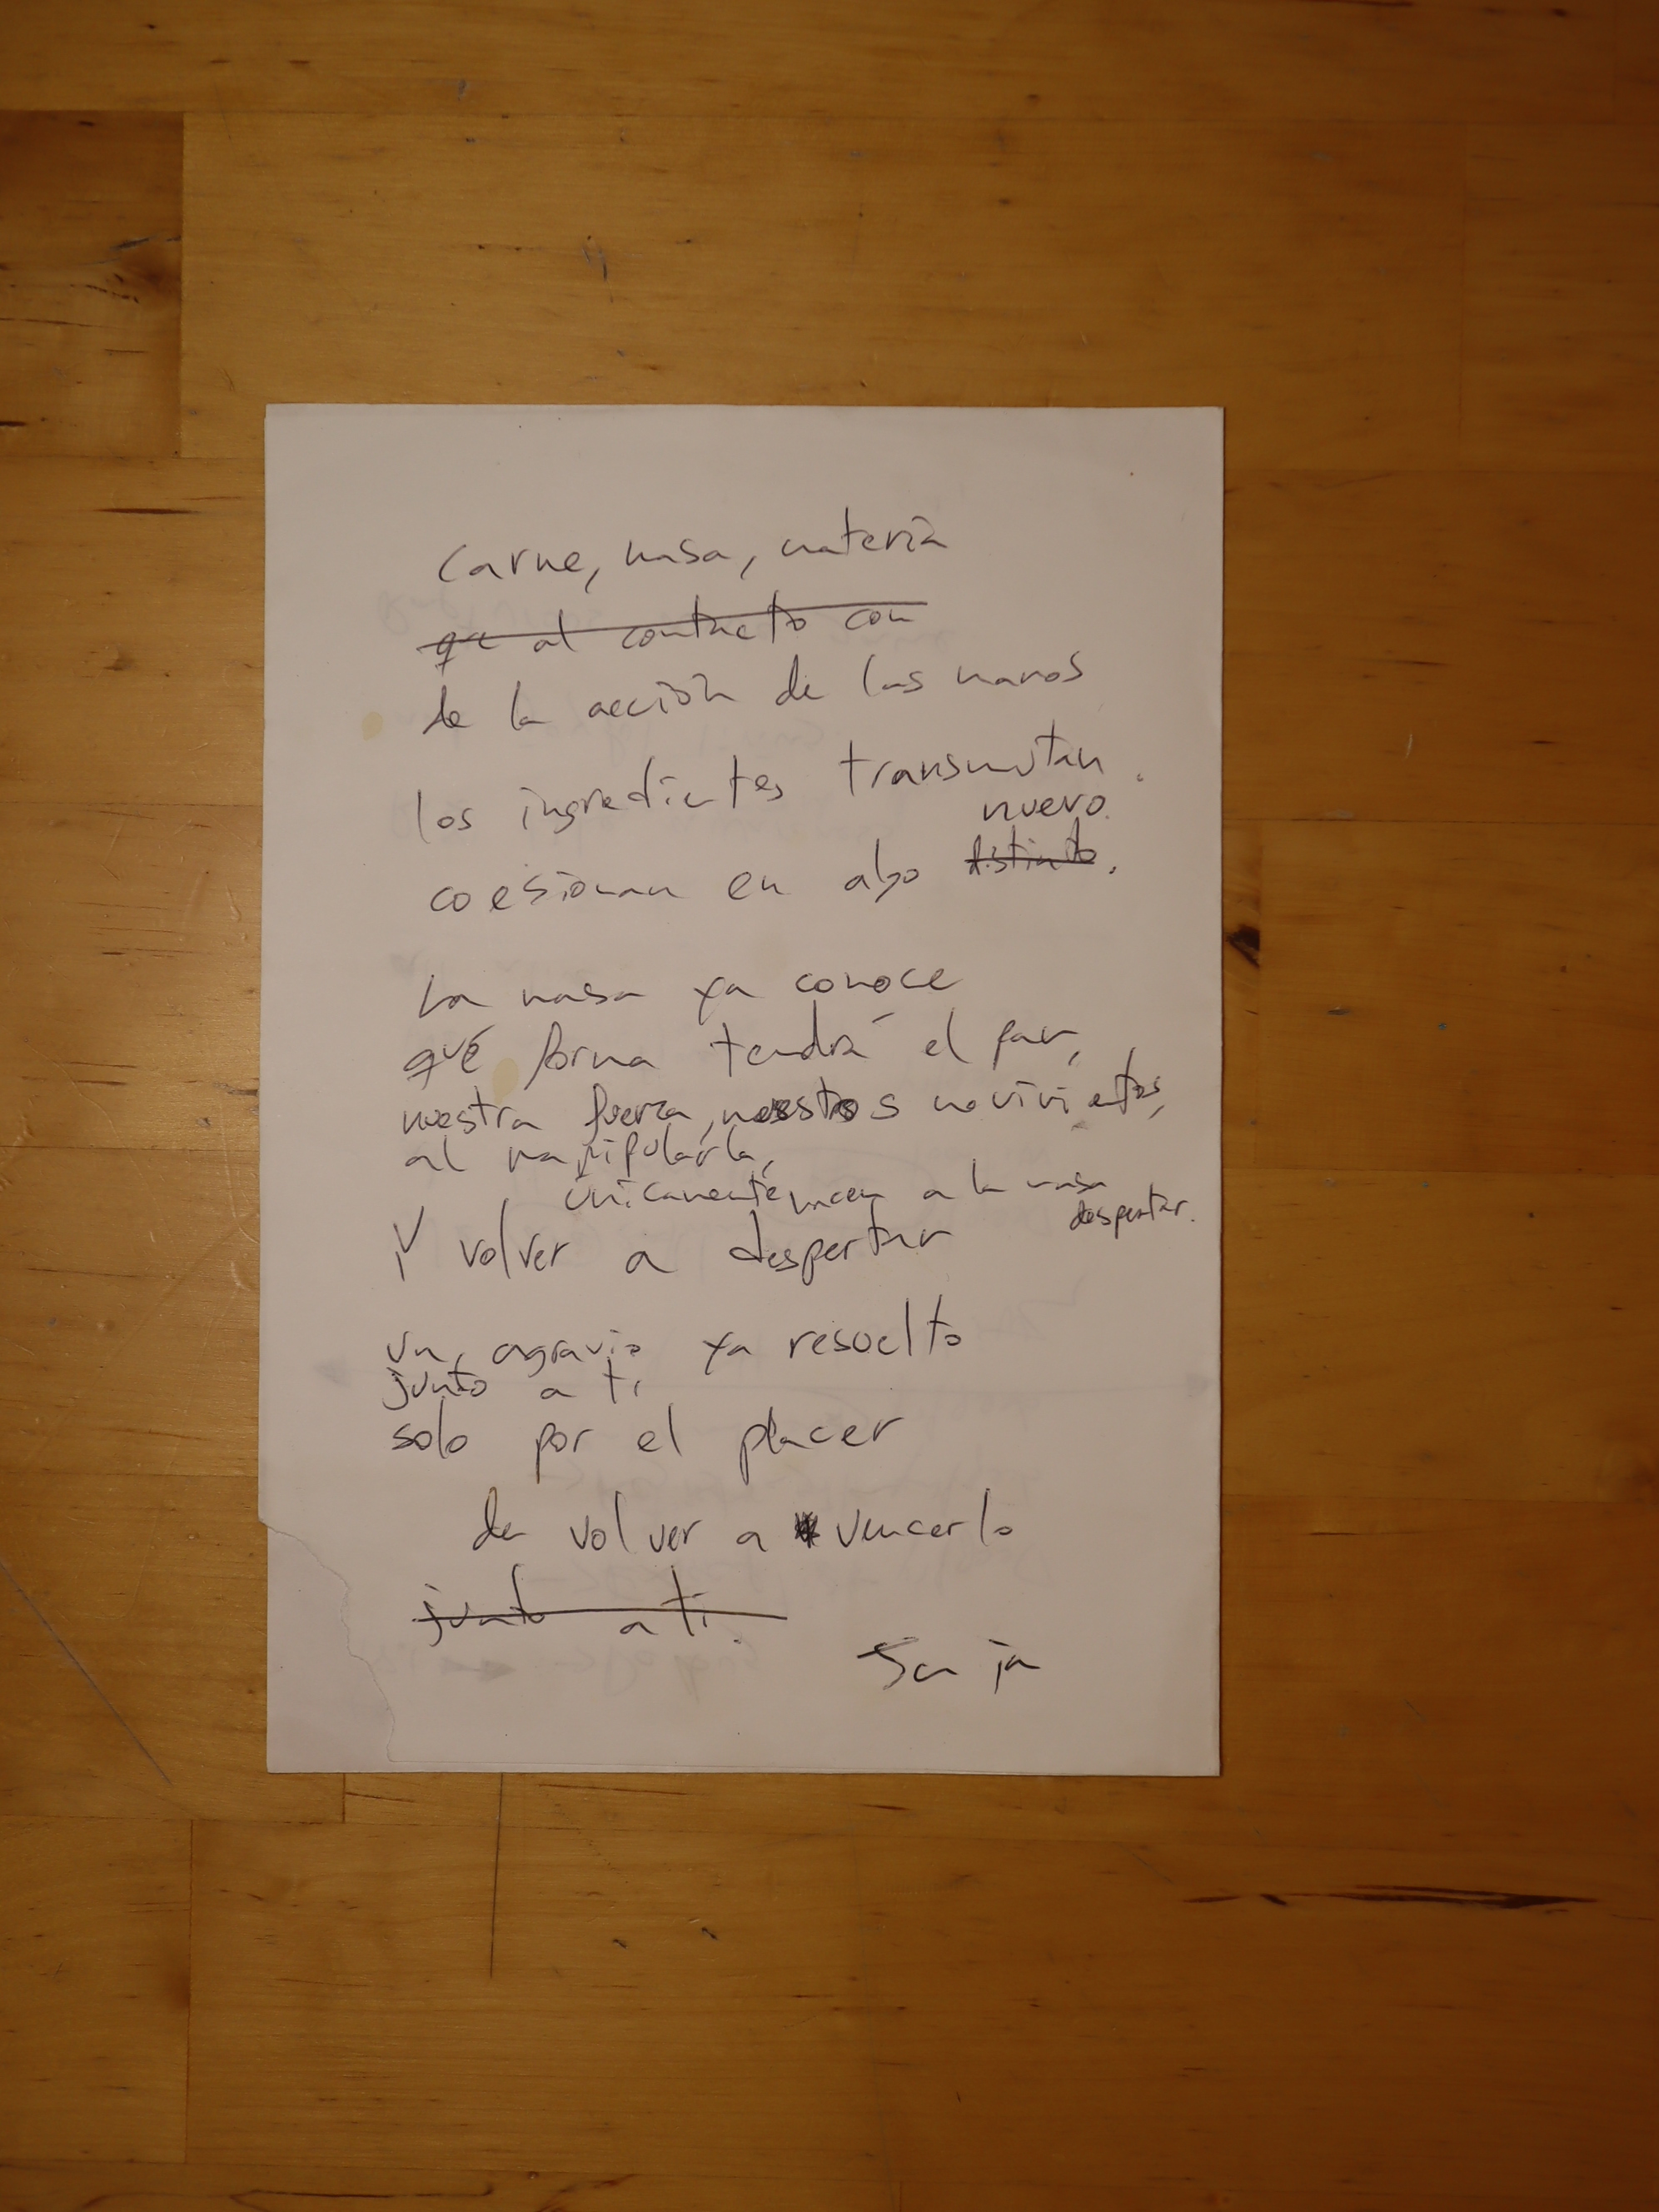 Carne, masa, materia
que al contacto con
de la acción de las manos
los ingredientes transmutan.
nuevo.
coesionan en algo distinto.
La masa ya conoce
qué forma tendrá el pan,
nuestra fuerza, nuestros movimientos,
al manipularla,
únicamente hacen a la masa
despertar.
Y volver a despertar
un agravio ya resuelto
junto a ti
solo por el placer
de volver a vencerlo
junto a ti.